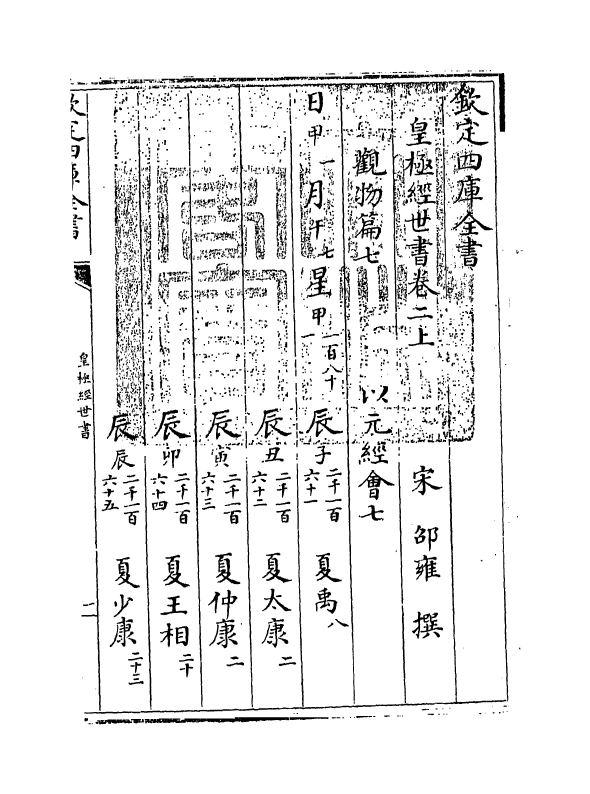 欽定四庫全書
皇極經世書卷二上
宋 邵雍 撰
觀物篇七 以元經會七
日甲一 月午七 星甲一百八十一 辰子二千一百六十一 夏禹八
辰丑二千一百六十二 夏太康二
辰寅二千一百六十三 夏仲康二
辰卯二千一百六十四 夏王相二十
辰辰二千一百六十五 夏少康二十三
欽定四庫全書
皇極經世書
一